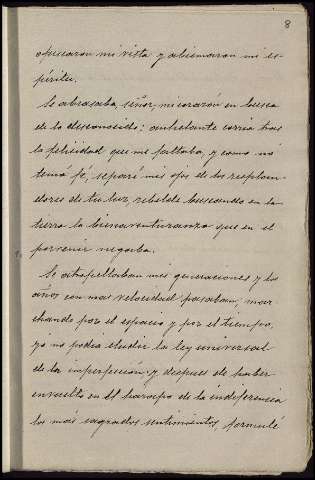 8
ofuscaron mi vista y abismaron mi es-
píritu.
Se abrasaba, señor, mi corazón en busca
de lo desconocido; anhelante corría tras
la felicidad que me faltaba, y como no
tenía fé, separé mis ojos de los resplan-
dores de tu luz, rebelde buscando en la
tierra la bienaventuranza que en el
porvenir negaba.
Se atropellaban mis generaciones y los
años con mas velocidad pasaban; mar-
chando por el espacio y por el tiempo,
yo no podia eludir la ley universal
de la imperfeccion y despues de haber
envuelto en el harapo de la indiferencia
los más sagrados sentimientos, formulé